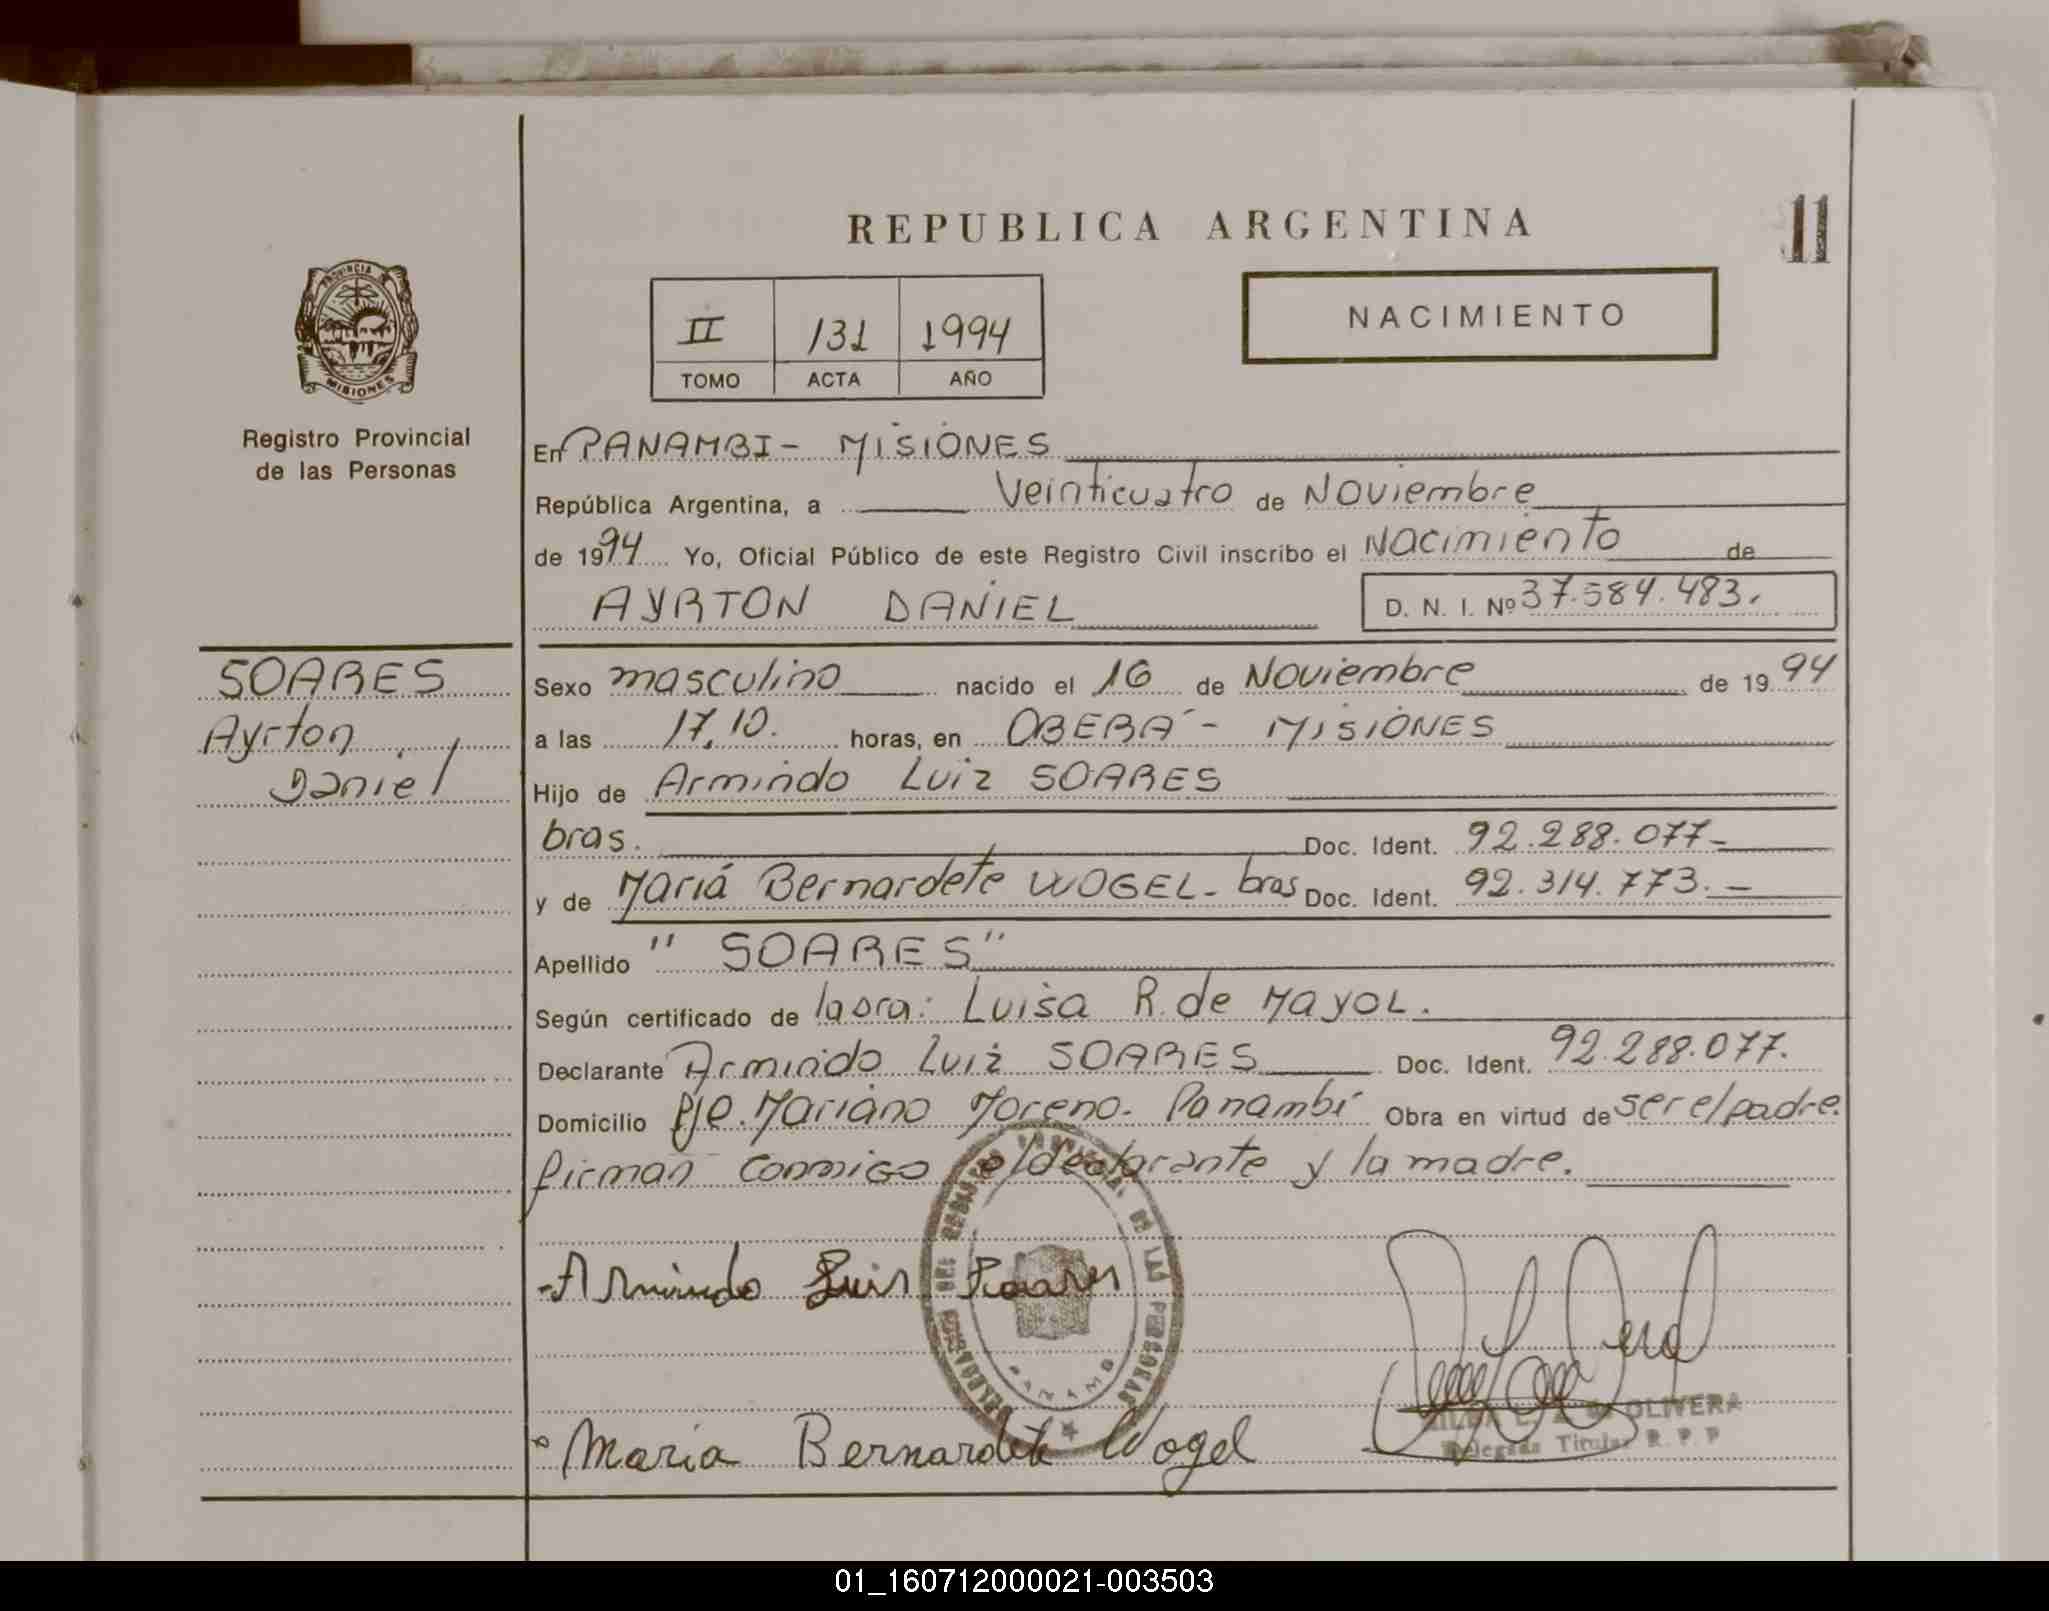 REPUBLICA ARGENTINA
11
PROVINCIA DE
MISIONES
Registro Provincial
de las Personas
II 131 1994
TOMO ACTA AÑO
NACIMIENTO
En PANAMBI - MISIONES
República Argentina, a Veinticuatro de Noviembre
de 1994 Yo, Oficial Público de este Registro Civil inscribo el Nacimiento de
AYRTON DANIEL D. N. I. Nº 37.584.483.
SOARES
Ayrton
Daniel
Sexo masculino nacido el 16 de Noviembre de 1994
a las 17,10. horas, en OBERÁ - MISIONES
Hijo de Armindo Luiz SOARES
bras. Doc. Ident. 92.288.077-
y de María Bernardete WOGEL - bras Doc. Ident. 92.314.773.-
Apellido " SOARES"
Según certificado de la sra: Luisa R. de Mayol.
Declarante Armindo Luiz SOARES Doc. Ident. 92.288.077.
Domicilio Pje. Mariano Moreno. Panambí Obra en virtud de ser el padre.
firman conmigo el declarante y la madre.
Armindo Luis Soares
DE LAS PERSONAS
PANAMBI
Maria Bernardete Wogel
OLIVERA
Delegada Titular R. P. P
01_160712000021-003503